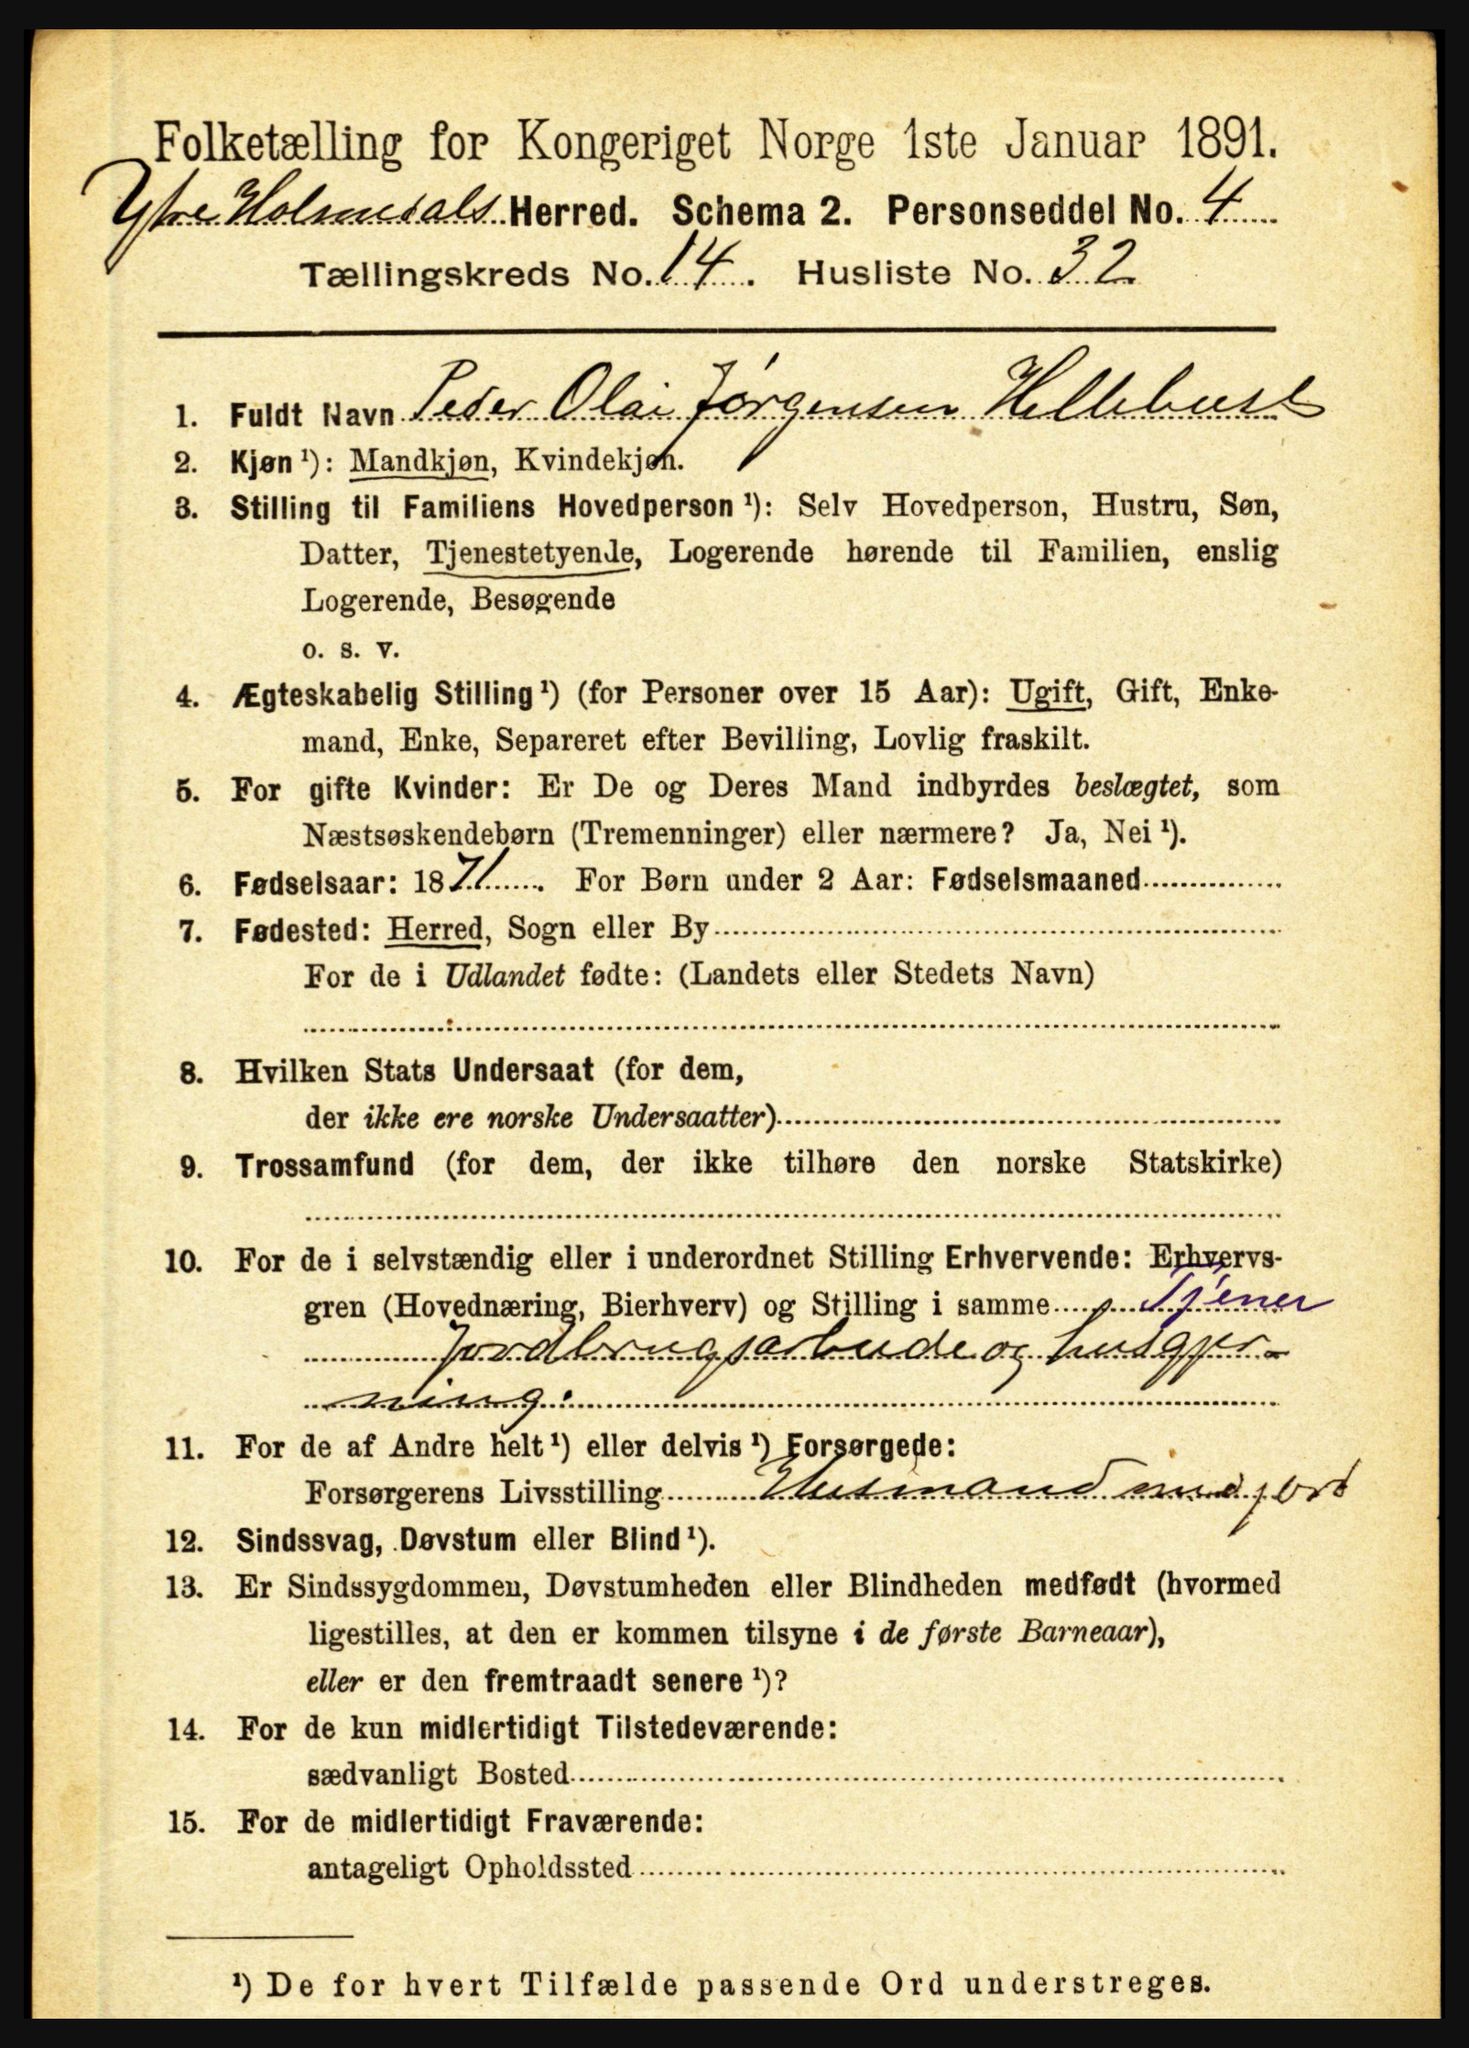 Folketælling for Kongeriget Norge 1ste Januar 1891.
Ytre Holmedals Herred. Schema 2. Personseddel No. 4
Tællingskreds No. 14. Husliste No. 32
1. Fuldt Navn Peder Olai Jørgensen Hellebust
2. Kjøn¹): Mandkjøn, Kvindekjøn.
3. Stilling til Familiens Hovedperson¹): Selv Hovedperson, Hustru, Søn,
Datter, Tjenestetyende, Logerende hørende til Familien, enslig
Logerende, Besøgende
o. s. v.
4. Ægteskabelig Stilling¹) (for Personer over 15 Aar): Ugift, Gift, Enke-
mand, Enke, Separeret efter Bevilling, Lovlig fraskilt.
5. For gifte Kvinder: Er De og Deres Mand indbyrdes beslægtet, som
Næstsøskendebørn (Tremenninger) eller nærmere? Ja, Nei¹).
6. Fødselsaar: 1871. For Børn under 2 Aar: Fødselsmaaned
7. Fødested: Herred, Sogn eller By
For de i Udlandet fødte: (Landets eller Stedets Navn)
8. Hvilken Stats Undersaat (for dem,
der ikke ere norske Undersaatter)
9. Trossamfund (for dem, der ikke tilhøre den norske Statskirke)
10. For de i selvstændig eller i underordnet Stilling Erhvervende: Erhvervs-
gren (Hovednæring, Bierhverv) og Stilling i samme Tjener
Jordbrugsarbeide og husgjer-
ning.
11. For de af Andre helt¹) eller delvis¹) Forsørgede:
Forsørgerens Livsstilling Husmand med jord
12. Sindssvag, Døvstum eller Blind¹).
13. Er Sindssygdommen, Døvstumheden eller Blindheden medfødt (hvormed
ligestilles, at den er kommen tilsyne i de første Barneaar),
eller er den fremtraadt senere¹)?
14. For de kun midlertidigt Tilstedeværende:
sædvanligt Bosted
15. For de midlertidigt Fraværende:
antageligt Opholdssted
¹) De for hvert Tilfælde passende Ord understreges.